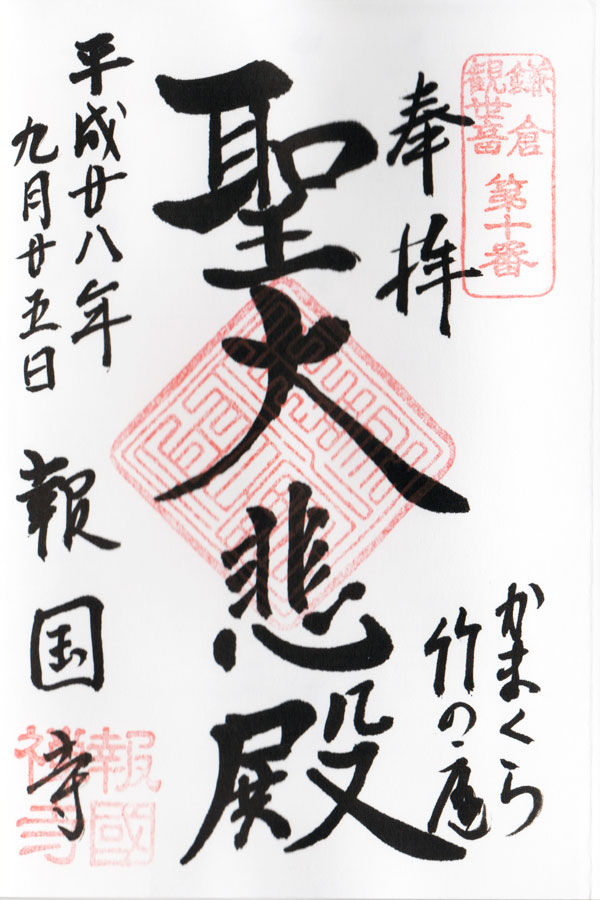 鎌倉
観世音
第十番
奉拝
かまくら
竹の庭
聖大悲殿
平成廿八年
九月廿五日
報国寺
報國
禅寺